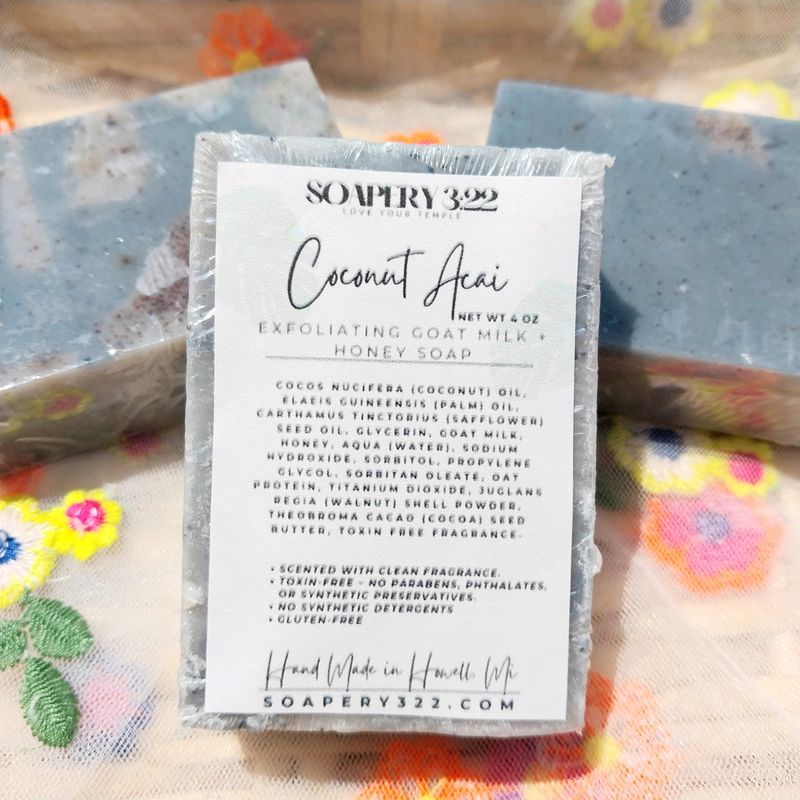 SOAPERY 3:22
LOVE YOUR TEMPLE
Coconut Acai
NET WT 4 OZ
EXFOLIATING GOAT MILK +
HONEY SOAP
COCOS NUCIFERA (COCONUT) OIL,
ELAEIS GUINEENSIS (PALM) OIL,
CARTHAMUS TINCTORIUS (SAFFLOWER)
SEED OIL, GLYCERIN, GOAT MILK,
HONEY, AQUA (WATER), SODIUM
HYDROXIDE, SORBITOL, PROPYLENE
GLYCOL, SORBITAN OLEATE, OAT
PROTEIN, TITANIUM DIOXIDE, JUGLANS
REGIA (WALNUT) SHELL POWDER,
THEOBROMA CACAO (COCOA) SEED
BUTTER, TOXIN FREE FRAGRANCE.
• SCENTED WITH CLEAN FRAGRANCE.
• TOXIN-FREE - NO PARABENS, PHTHALATES,
OR SYNTHETIC PRESERVATIVES.
• NO SYNTHETIC DETERGENTS
• GLUTEN-FREE
Hand Made in Howell, Mi
SOAPERY322.COM